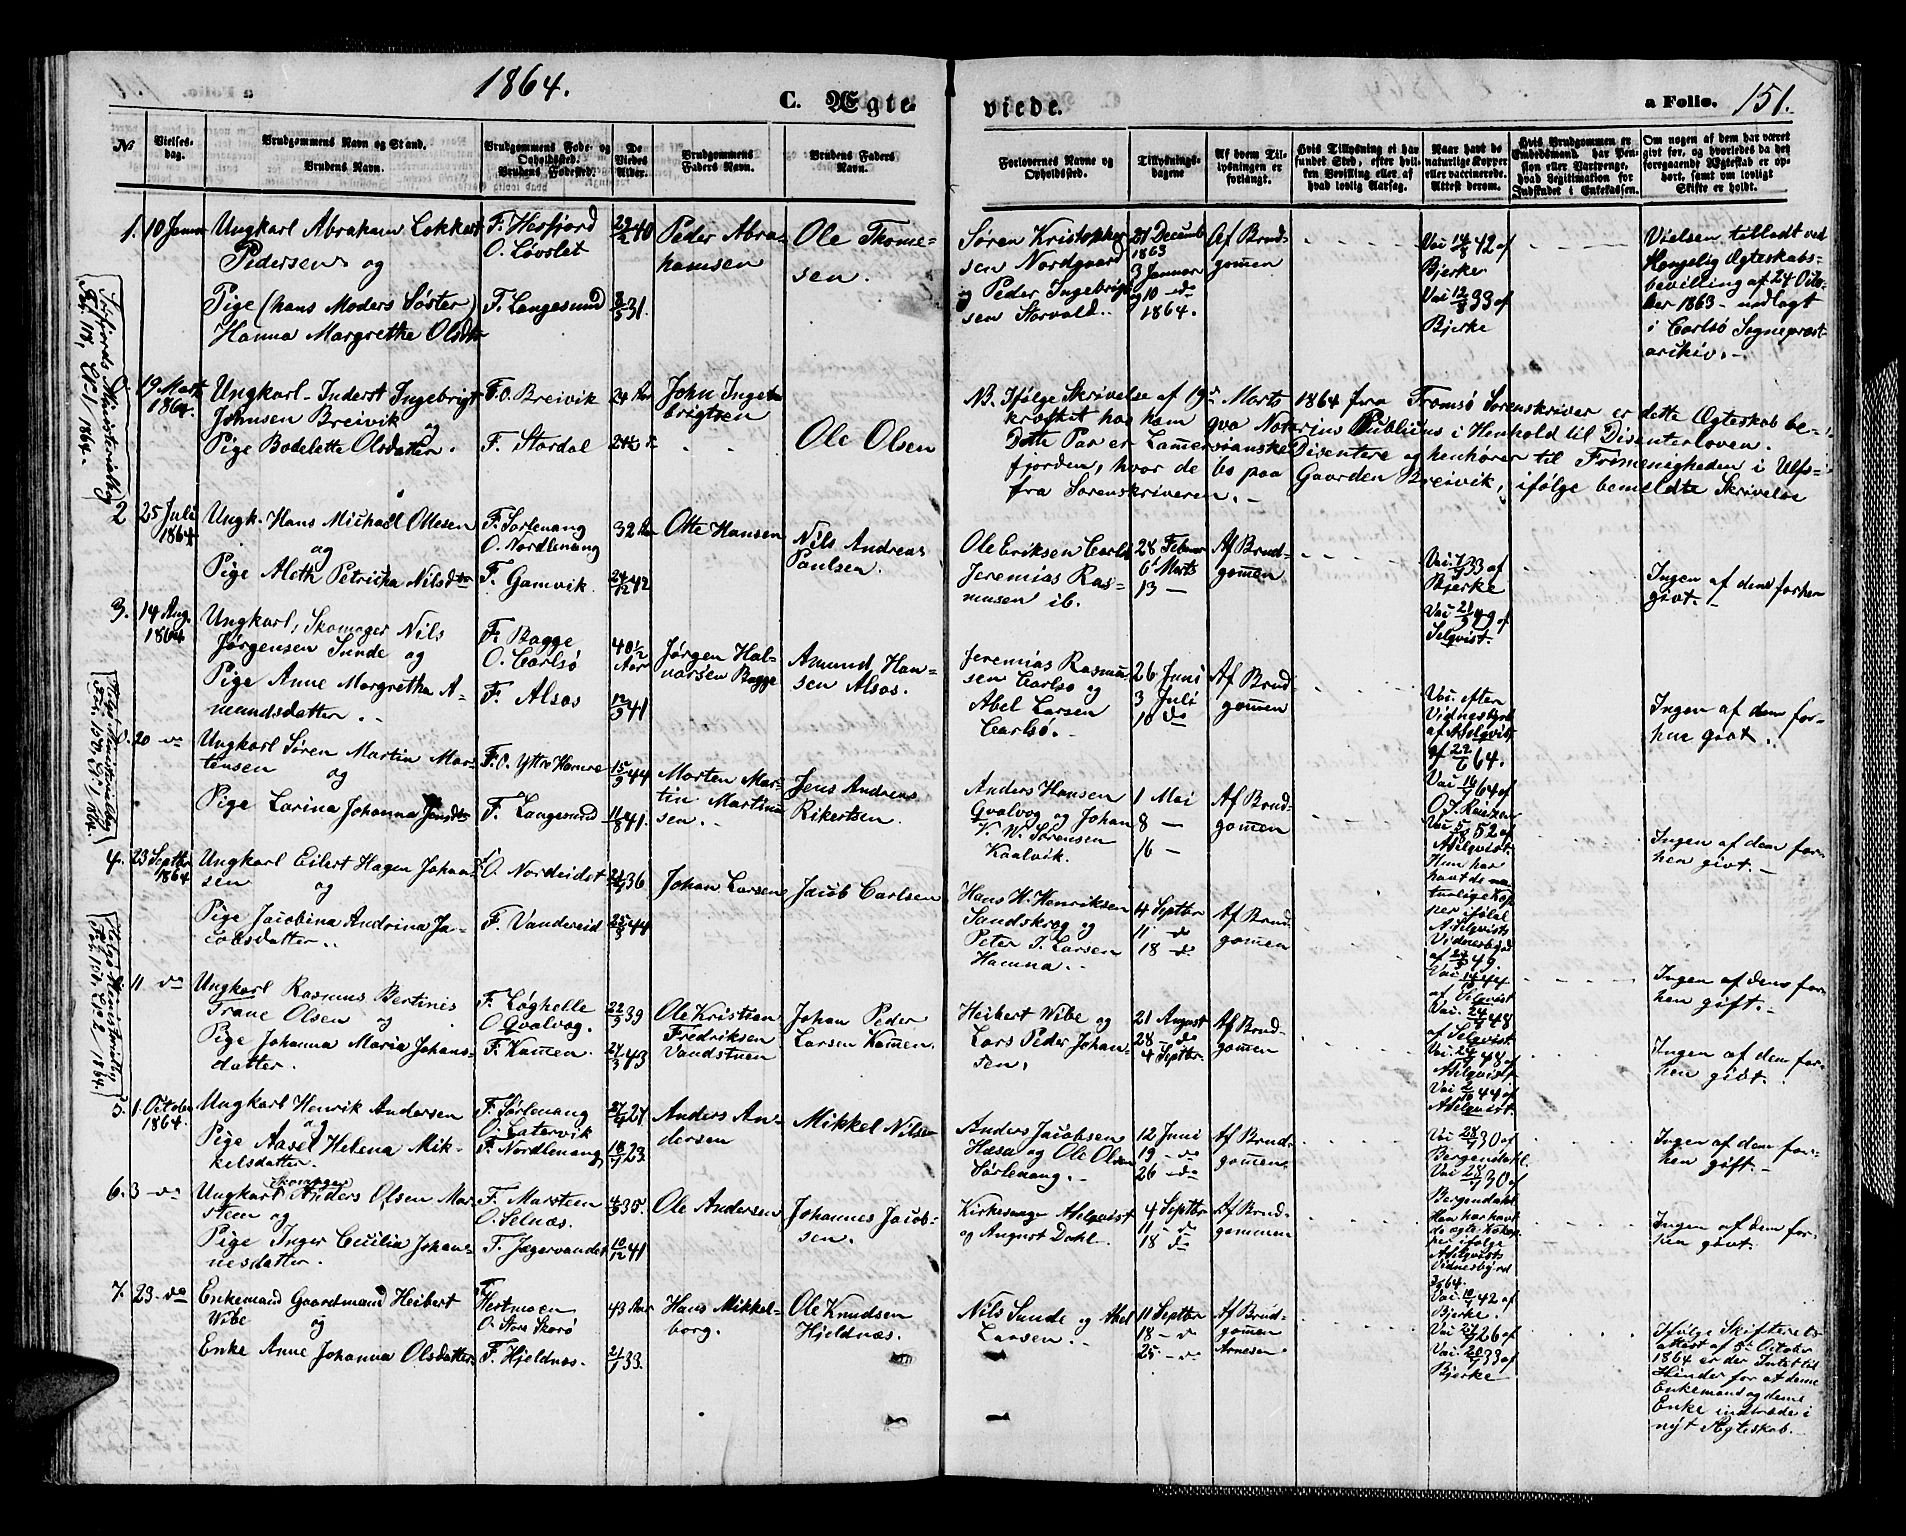 1864.
C. Ægte
viede.
a Folio. 151.
No
Vielses-
dag.
Brudgommens Navn og Stand.
Brudens Navn.
Brudgommens Føde- og
Opholdssted.
Brudens Fødested.
De
Viedes
Alder.
Brudgommens
Faders Navn.
Brudens Faders
Navn.
Forlovernes Navne og
Opholdssted.
Tillysnings-
dagene
Af hvem Til-
lysningen er
forlangt.
Hvis Tillysning ei har
fundet Sted, efter hvil-
ken Bevilling eller af
hvad lovlig Aarsag.
Naar havt de
naturlige Kopper
eller vaccinerede.
Attest derom.
Hvis Brudgommen er
Embedsmand, har Pen-
sion eller Vartpenge,
hvad Legitimation for
Indskudet i Enkekassen.
Om nogen af dem har været
gift før, og hvorledes da det
foregaaende Ægteskab er op-
hørt, samt om lovligt
Skifte er holdt.
1. 10 Januar
Ungkarl Abraham Lokkert
Pedersen og
Pige (hans Moders Søster)
Hanna Margretha Olsdtr
F. Hesfjord
O. Løvslet
F. Langesund
29/2 40
8/5 31.
Peder Abra-
hamsen
Ole Thome-
sen.
Søren Kristopher-
sen Nordgaard
og Peder Ingebrigt-
sen Storvold.
27 Decemb
1863
3 Januar
og 10 do
1864.
Af Brud-
gommen
Vac 14/8 42 af
Bjerke
Vac 12/8 33 af
Bjerke
Vielsen tilladt ved
Kongelig Ægteskabs-
bevilling af 24 Octo-
ber 1863 - nedlagt
i Carlsø Sognepræst
arkiv. -
19 Marts
1864.
Ungkarl Inderst Ingebrigt
Johnsen Breivik
og
Pige Bodelette Olsdatter.
F. O. Breivik
F. Stordal
24 Aar
John Inge-
brigtsen
Ole Olsen
NB. Ifølge Skrivelse af 19de Marts 1864 fra Tromsø Sorenskriver er dette Ægteskab be-
kræftet hos ham qva Notarius Publicus i Henhold til Disenterloven.
Dette Par er Lamersianske Disentere og henhører til Frimenigheden i Ulfs-
fjorden, hvor de bo paa Gaarden Breivik, ifølge bemeldte Skrivelse
fra Sorenskriveren. -
2 25 Juli
1864
Ungk. Hans Michael Ottesen
og
Pige Aleth Petricka Nilsdtr
F. Sørlenang
O. Nordlenang
F. Gamvik
32 Aar
24/12 42
Otte Hansen
Nils Andreas
Paulsen.
Ole Eriksen Carlsø
Jeremias Ras-
musen ib.
28 Februar
6 Marts
13 -
Af Brud-
gommen
Vac 7/9 33 af
Bjerke
Vac 21/9 49 af
Selqvist.
Ingen af dem forhen
givt. -
3. 14 Aug.
1864
Ungkarl, Skomager Nils
Jørgensen Sunde og
Pige Anne Margretha A-
mundsdatter. -
F. Bagge
O. Carlsø
F. Alsos
40 1/2
Aar
12/9 41
Jørgen Hal-
varsen Bagge
Amund Han-
sen Alsos.
Jeremias Rasmu-
sen Carlsø og
Abel Larsen
Carlsø.
26 Juni
3 Juli
10 do
Af Brud-
gommen
Vac. efter
Vidnesbyrd
af Ahlqvist
af 22/6 64.
Ingen af dem for-
hen givt.
20 do
Ungkarl Søren Martin Mar-
tensen og
Pige Larina Johanna Jensdtr
F. O. Yttre Hamre
F. Langesund
15/9 44
11/8 41.
Morten Mar-
tin Martin-
sen. -
Jens Andreas
Rikertsen.
Anders Hansen
Qvalvog og Johan
V. W. Sørensen
Kaalvik.
1 Mai
8 -
16 -
Af Brud-
gommen
Ingen af dem for-
hen givt. -
4. 23 Septbr
1864
Ungkarl Eilert Hagen Johan-
sen og
Pige Jacobina Andrina Ja-
cobsdatter.
O. Nordeidet
F. Vandereid
36
25/8 44
Johan Larsen
Jacob Carlsen
Hans H. Henriksen
Sandskrog og
Peter J. Larsen
Hamna. -
4 Septbr
11. do
18 do
Af Brud-
gommen
Hun har
havt de na-
turlige Kop-
per ifølge
A. Selqvists
Vidnesbyrd
Ingen af dem for-
hen gift. -
11 do
Ungkarl Rasmus Bertinis
Trane Olsen og
Pige Johanna Maria Johans-
datter.
F. Løghelle
O. Qvalvog.
F. Kamen.
22/9 39
24/3 43
Ole Kristian
Fredriksen
Vandstuen
Johan Peder
Larsen Kamen.
Heibert Wibe og
Lars Peder Johan-
sen.
21 August
28 do
4 Septbr
Af Brud-
gommen
Ingen af dem for-
hen givt.
1 October
1864.
Ungkarl Henrik Andersen
og
Pige Aasel Helena Mik-
kelsdatter.
F. Sørlenang
O. Latervik
F. Nordlenang
27
23.
Anders An-
dersen
Mikkel Nilsen
Anders Jacobsen
Hæsa og Ole Olsen
Sørlenang. -
12 Juni
19 - do
26 - do
Af Brud-
gommen.
Vac 28/7 30 af
Bergendahl.
Ingen af dem for-
hen gift. -
6. 3 - do
Skomager
Ungkarl Anders Olsen Mar-
steen og
Pige Inger Cecilia Johan-
nesdatter.
F. Marsteen
O. Selnæs.
F. Jægervandet
4/8 35.
10/12 41
Ole Andersen
Johannes Jacob-
sen.
Kirkesang. Ahlqvist
og August Dahl.
4 Septbr
11 - do
18 do
Af Brud-
gommen
Bergendahl
Han har havt
de ægte Kokop-
per ifølge
Ahlqvists
Vidnesbyrd
Ingen af dem for-
hen givt.
7. 23 - do
Enkemand Gaardmand Heibert
Wibe og
Enke Anne Johanna Olsdatter
F.
Hestmoen
O. Store Skorø
F. Hjeldnæs.
43 Aar
21/1 33.
Hans Mikkel-
borg.
Ole Knudsen
Hjeldnæs.
Nils Sunde og Abel
Larsen.
11 Septbr
18 - do
25 - do
Af Brud-
gommen
Arnesen
Bjerke
Vac 20/7 33 af
Bjerke
Ifølge Skifteretts
attest af 5te October
1864 er der Intet til
Hinder for at denne
Enkemand og denne
Enke indtræde i
nyt Ægteskab.